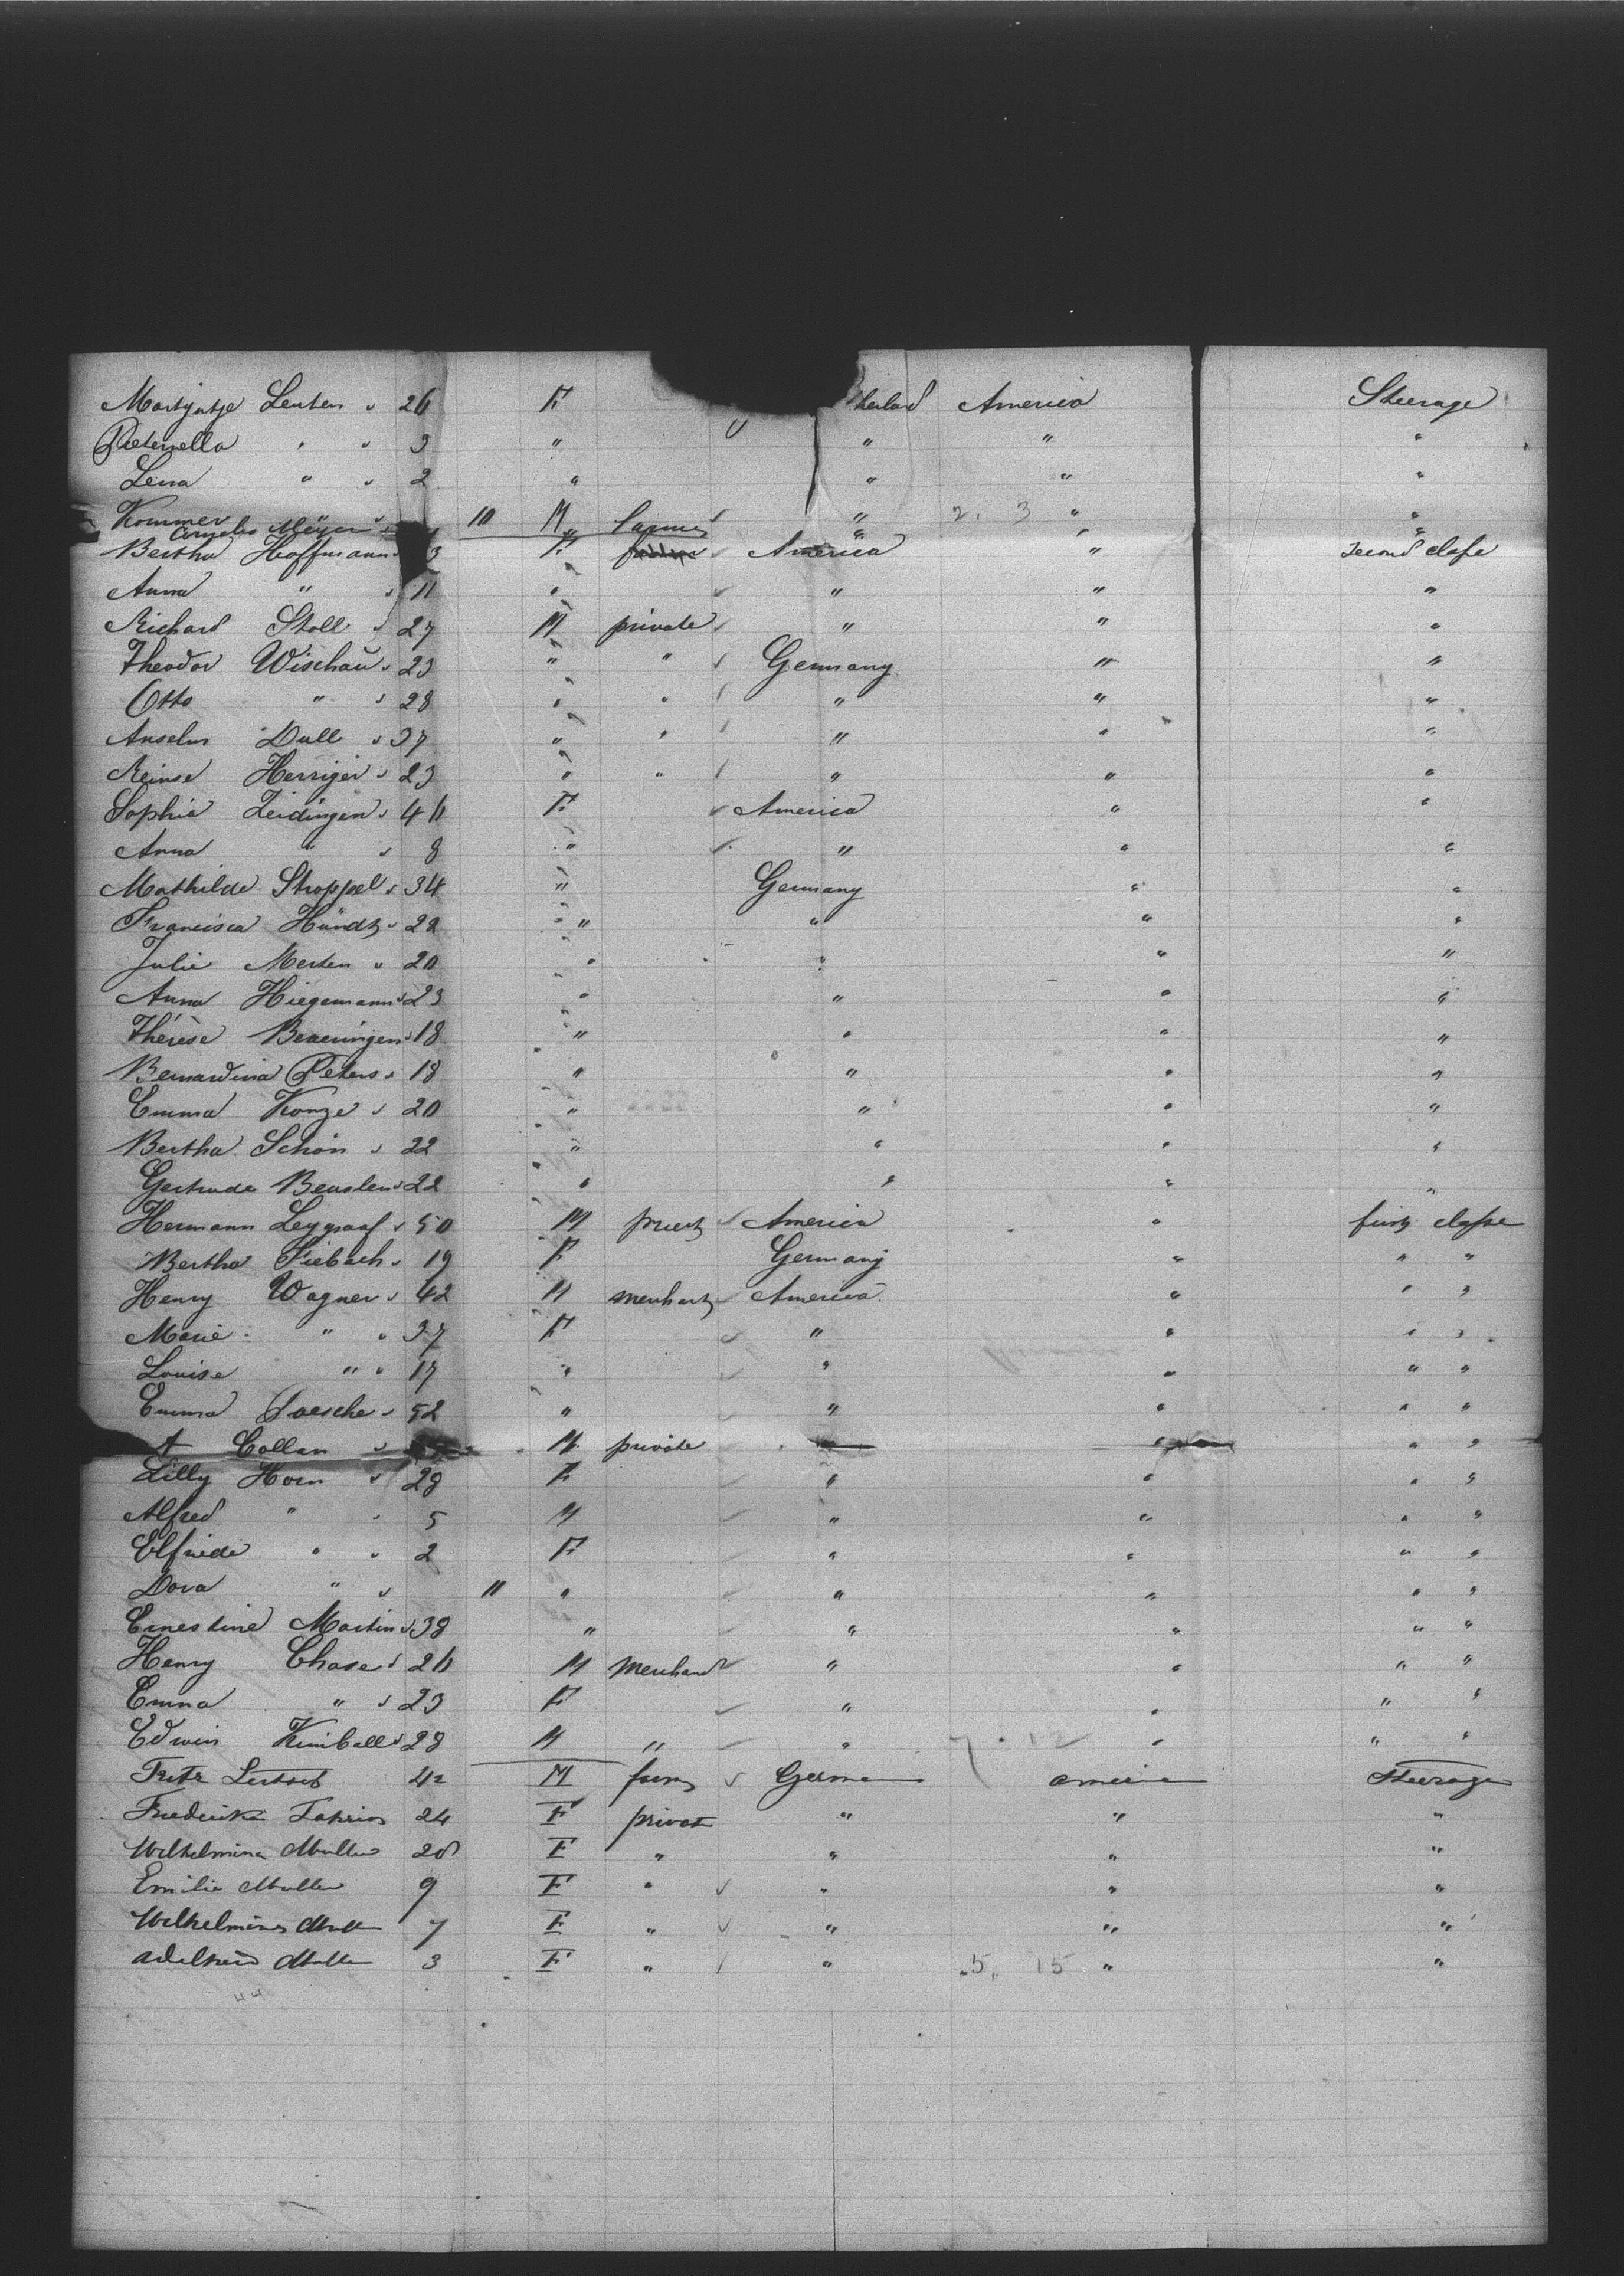 Martyntje Leuten " 26 F herland America Steerage
Pieternella " " 3 " " " "
Lena " " 2 " " " "
Kommer " " 10 M " 2. 3 " "
Meÿer " " " "
Bertha Hoffmann " 3 F America " second classe
Anna " " 11 " " " "
Richard Stoll " 27 M private " " "
Theodor Wischaŭ " 23 " " Germany " "
Otto " " 28 " " " " "
Anselm Dull " 37 " " " " "
Heinse Herriger " 23 " " " " "
Sophia Zeidingen " 46 F America " "
Anna " " 8 " " " "
Mathilde Stroppel " 34 " Germany " "
Francisca Hündt " 22 " " " "
Julie Merten " 20 " " " "
Anna Hiegemann " 23 " " " "
Thérèse " 18 " " " "
Bernardina Peters " 18 " " " "
Emma Konze " 20 " " " "
Bertha Schön " 22 " " " "
Gertrude " 22 " " " "
Hermann Leygraaf " 50 M priest America " first classe
Bertha Fiebach " 19 F Germany " " "
Henry Wagner " 42 M merchant America " " "
Marie " " 37 F " " " "
Louise " " 17 " " " " "
Emma Poesche " 52 " " " " "
A Collan " M private " " "
Lilly Horn " 28 F " " " "
Alfred " " 5 M " " " "
Elfriede " " 2 F " " " "
Dora " " 11 " " " " "
Ernestine Martin " 38 " " " " "
Henry Chase " 26 M Merchand " " " "
Emma " " 23 F " " " "
Edwin Kimball " 28 M " " 7 . 12 " " "
Fritz 42 M German America Steerage
Frederike 24 F privat " " "
Wilhelmina Muller 28 F " " " "
Emilie Muller 9 F " " " "
Wilhelmina Mull 7 F " " " "
Adelheid Mulle 3 F " " 5 " 15 " "
44